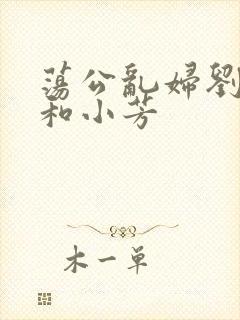 蕩公亂婦劉
和小芳
木一單